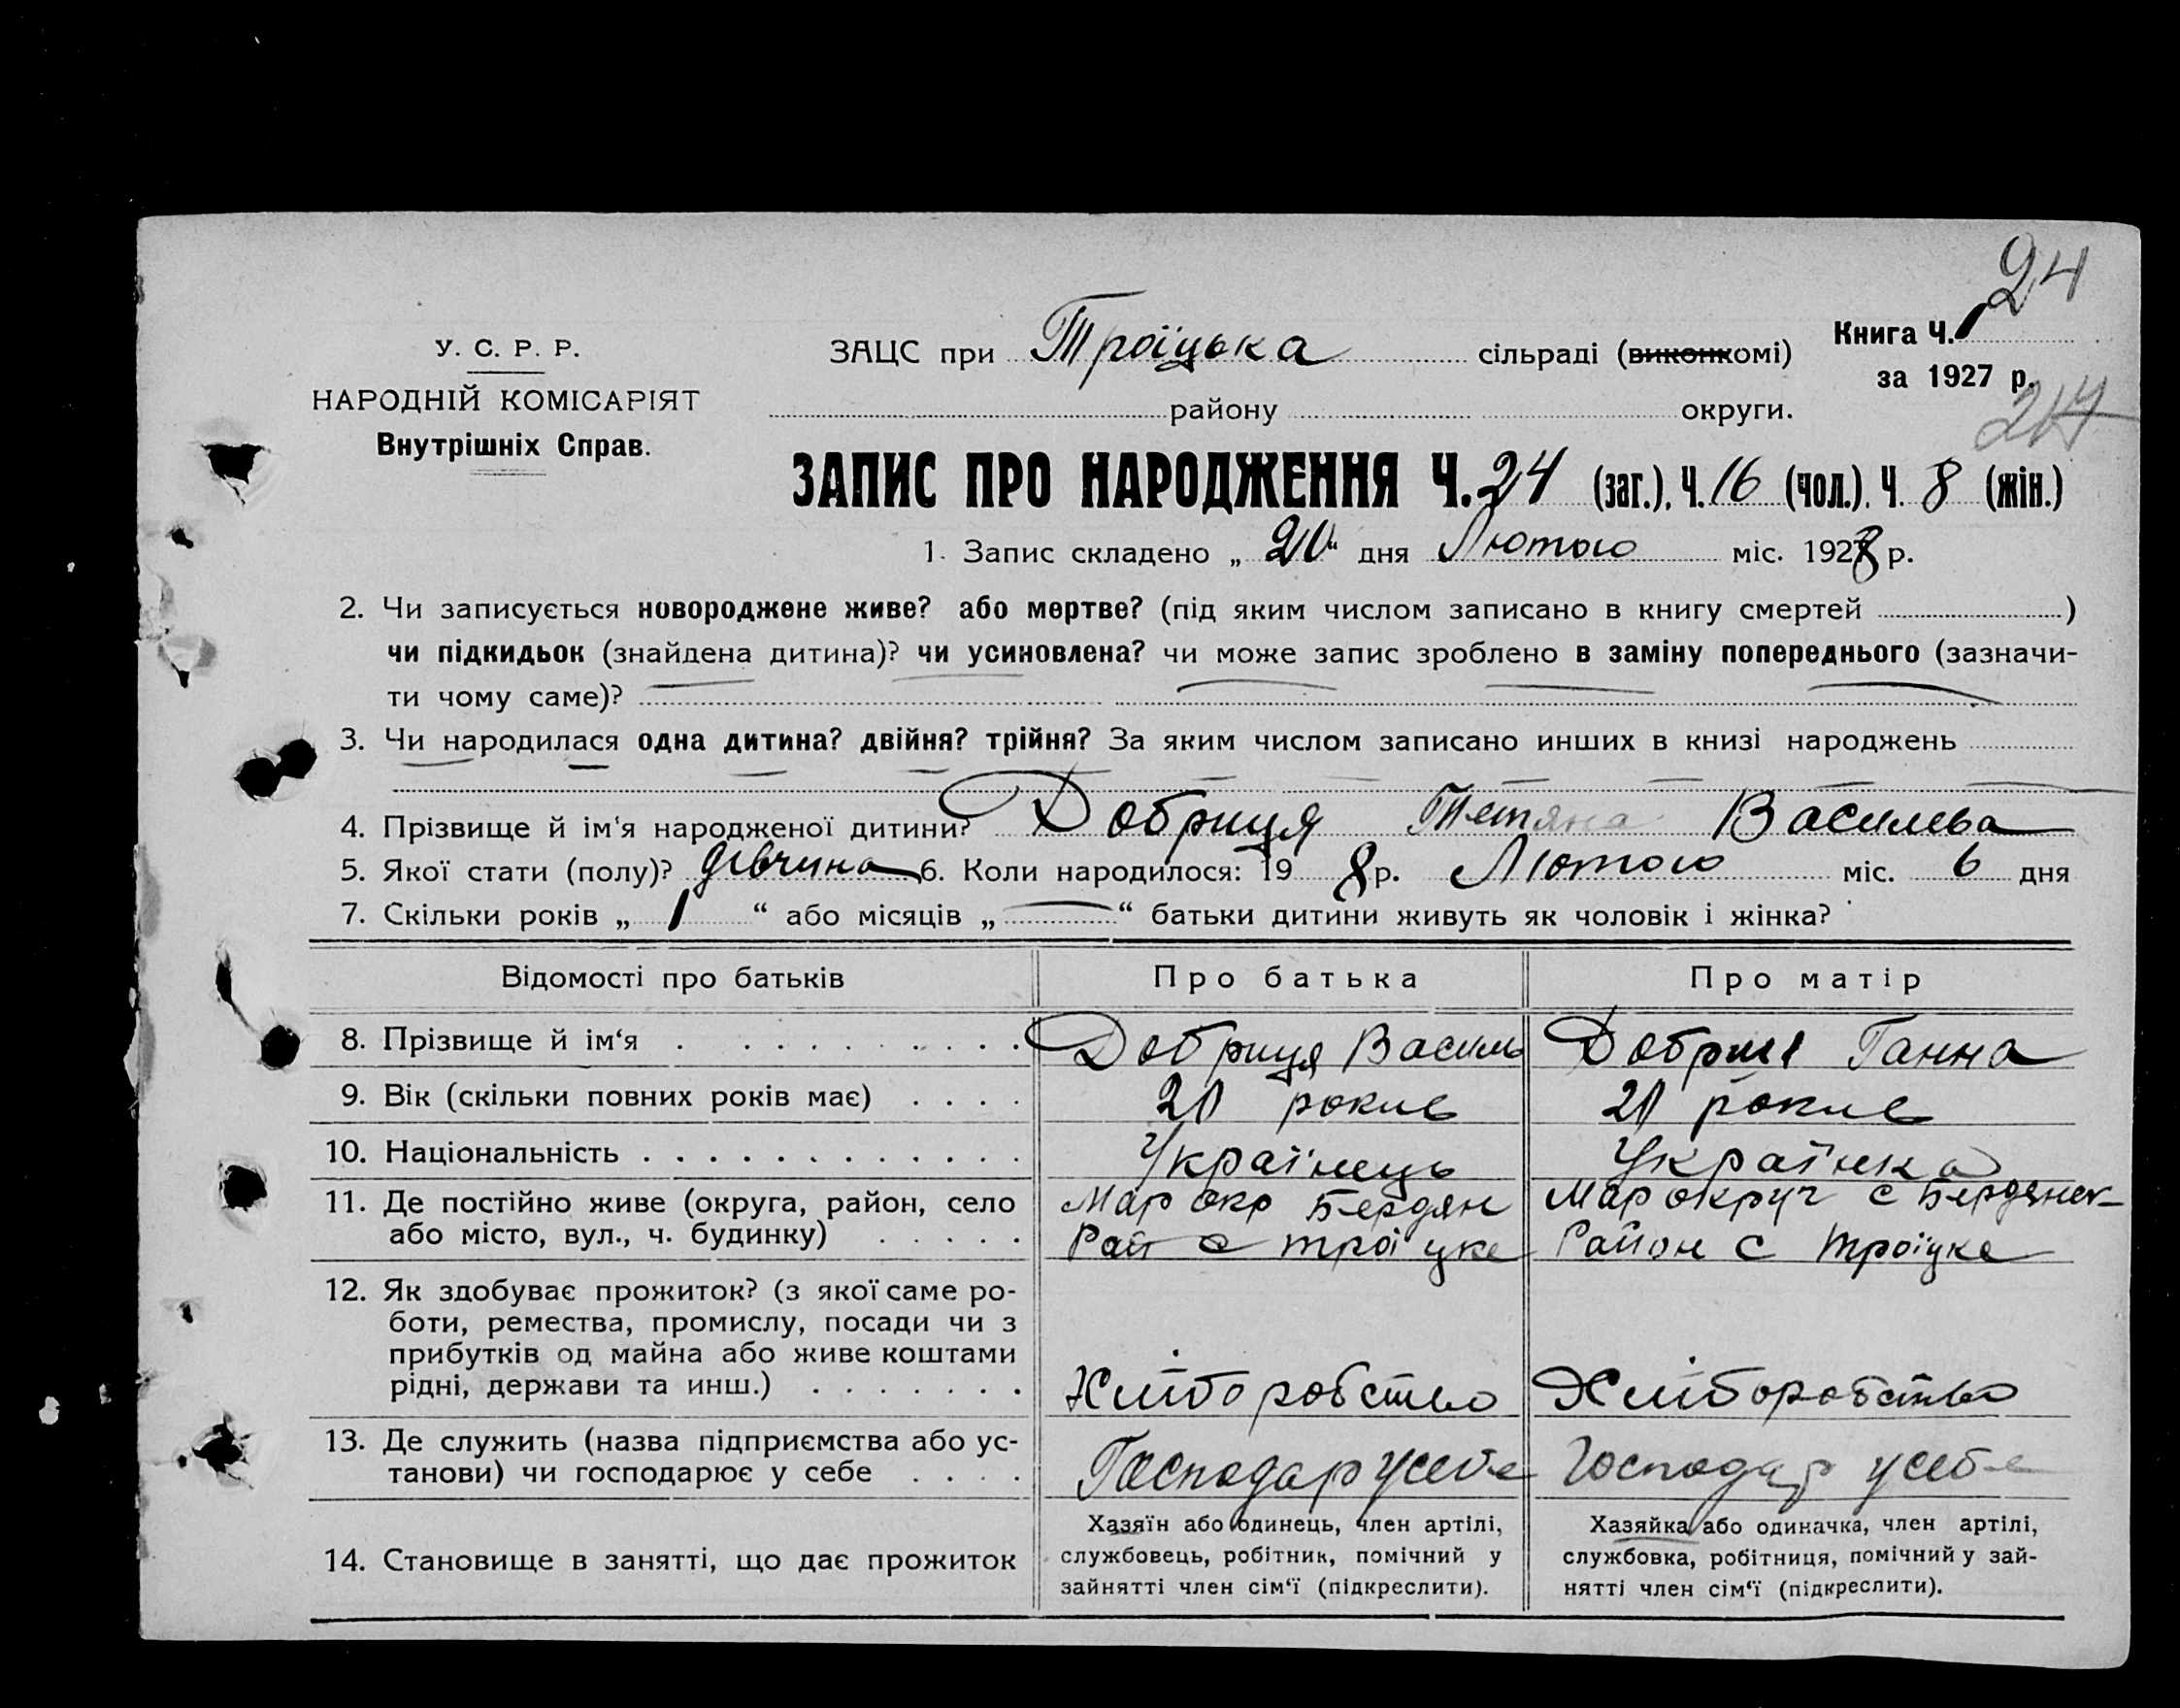 24
У. С. Р. Р.
НАРОДНІЙ КОМІСАРІЯТ
Внутрішніх Справ.
ЗАЦС при Троїцька сільраді (виконкомі)
Книга Ч. 1
за 1927 р.
району округи.
24
ЗАПИС ПРО НАРОДЖЕННЯ Ч. 24 (заг.), Ч. 16 (чол.), Ч. 8 (жін.)
1. Запис складено „ 20 “ дня Лютого міс. 1928 р.
2. Чи записується новороджене живе? або мертве? (під яким числом записано в книгу смертей )
чи підкидьок (знайдена дитина)? чи усиновлена? чи може запис зроблено в заміну попереднього (зазначи-
ти чому саме)?
3. Чи народилася одна дитина? двійня? трійня? За яким числом записано инших в книзі народжень
4. Прізвище й ім'я народженої дитини? Добриця Тетяна Василева
5. Якої стати (полу)? дівчина 6. Коли народилося: 19 8 р. Лютого міс. 6 дня
7. Скільки років „ 1 “ або місяців „ — “ батьки дитини живуть як чоловік і жінка?
Відомості про батьків Про батька Про матір
8. Прізвище й ім‘я Добриця Василь Добриця Ганна
9. Вік (скільки повних років має) 20 роки в 20 роки в
10. Національність Українець Українка
11. Де постійно живе (округа, район, село Мар окр Бердян Мар округ с Бердянск
або місто, вул., ч. будинку) Рай с троїцке Район с троїцке
12. Як здобуває прожиток? (з якої саме ро-
боти, ремества, промислу, посади чи з
прибутків од майна або живе коштами
рідні, держави та инш.) Хліборобство Хліборобство
13. Де служить (назва підприємства або ус-
танови) чи господарює у себе Господар усебе Господар усебе
14. Становище в занятті, що дає прожиток
Хазяїн або одинець, член артілі,
службовець, робітник, помічний у
зайнятті член сім‘ї (підкреслити).
Хазяйка або одиначка, член артілі,
службовка, робітниця, помічний у зай-
нятті член сім‘ї (підкреслити).